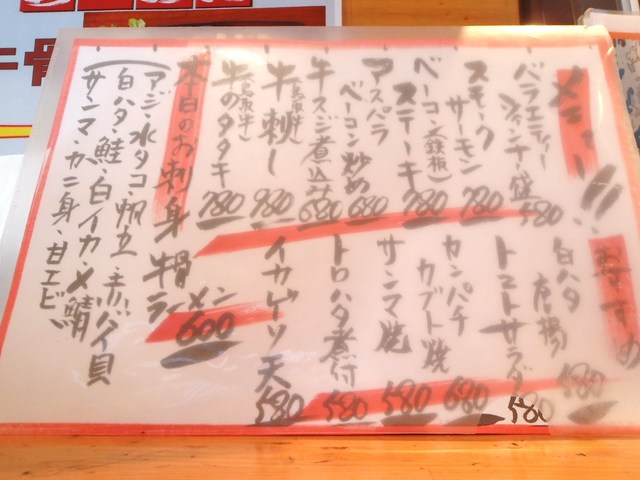 メニュー!!
おすすめ
バラエティー
ウインナー盛 580
スモーク
サーモン 780
ベーコン(鉄板)
ステーキ 780
アスパラ
ベーコン炒め 680
牛スジ煮込み 680
牛刺し(鳥取牛) 980
牛のタタキ(鳥取牛) 780
白ハタ
唐揚 580
トマトサラダ 580
カンパチ
カブト焼 680
サンマ焼 580
トロハタ煮付 580
イカゲソ天 580
牛骨
ラーメン
600
本日のお刺身
(アジ・水タコ・帆立・赤バイ貝
白ハタ・鮭・白イカ・〆鯖
サンマ・カニ身・甘エビ
牛骨